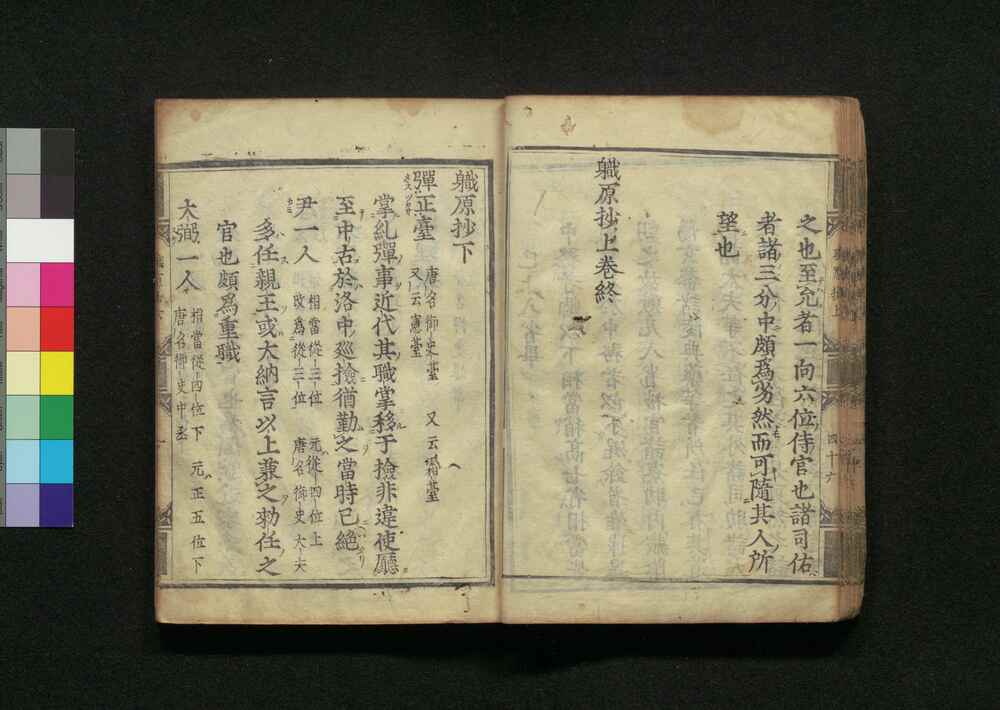 之也至允者一向六位侍官也諸司佑
者諸三分中頗爲劣然而可隨其人所
望也
職原抄上卷終
四十六
職原抄下
彈正臺
唐名御史臺 又云霜臺
又云憲臺
掌糺彈事近代其職掌移于撿非違使廳
至中古於洛中廵撿猶勤之當時已絶
尹一人
相當從三位 元從四位上
改爲從三位 唐名御史大夫
多任親王或大納言以上兼之勅任之
官也頗爲重職
大弼一人
相當從四位下 元正五位下
唐名御史中丞